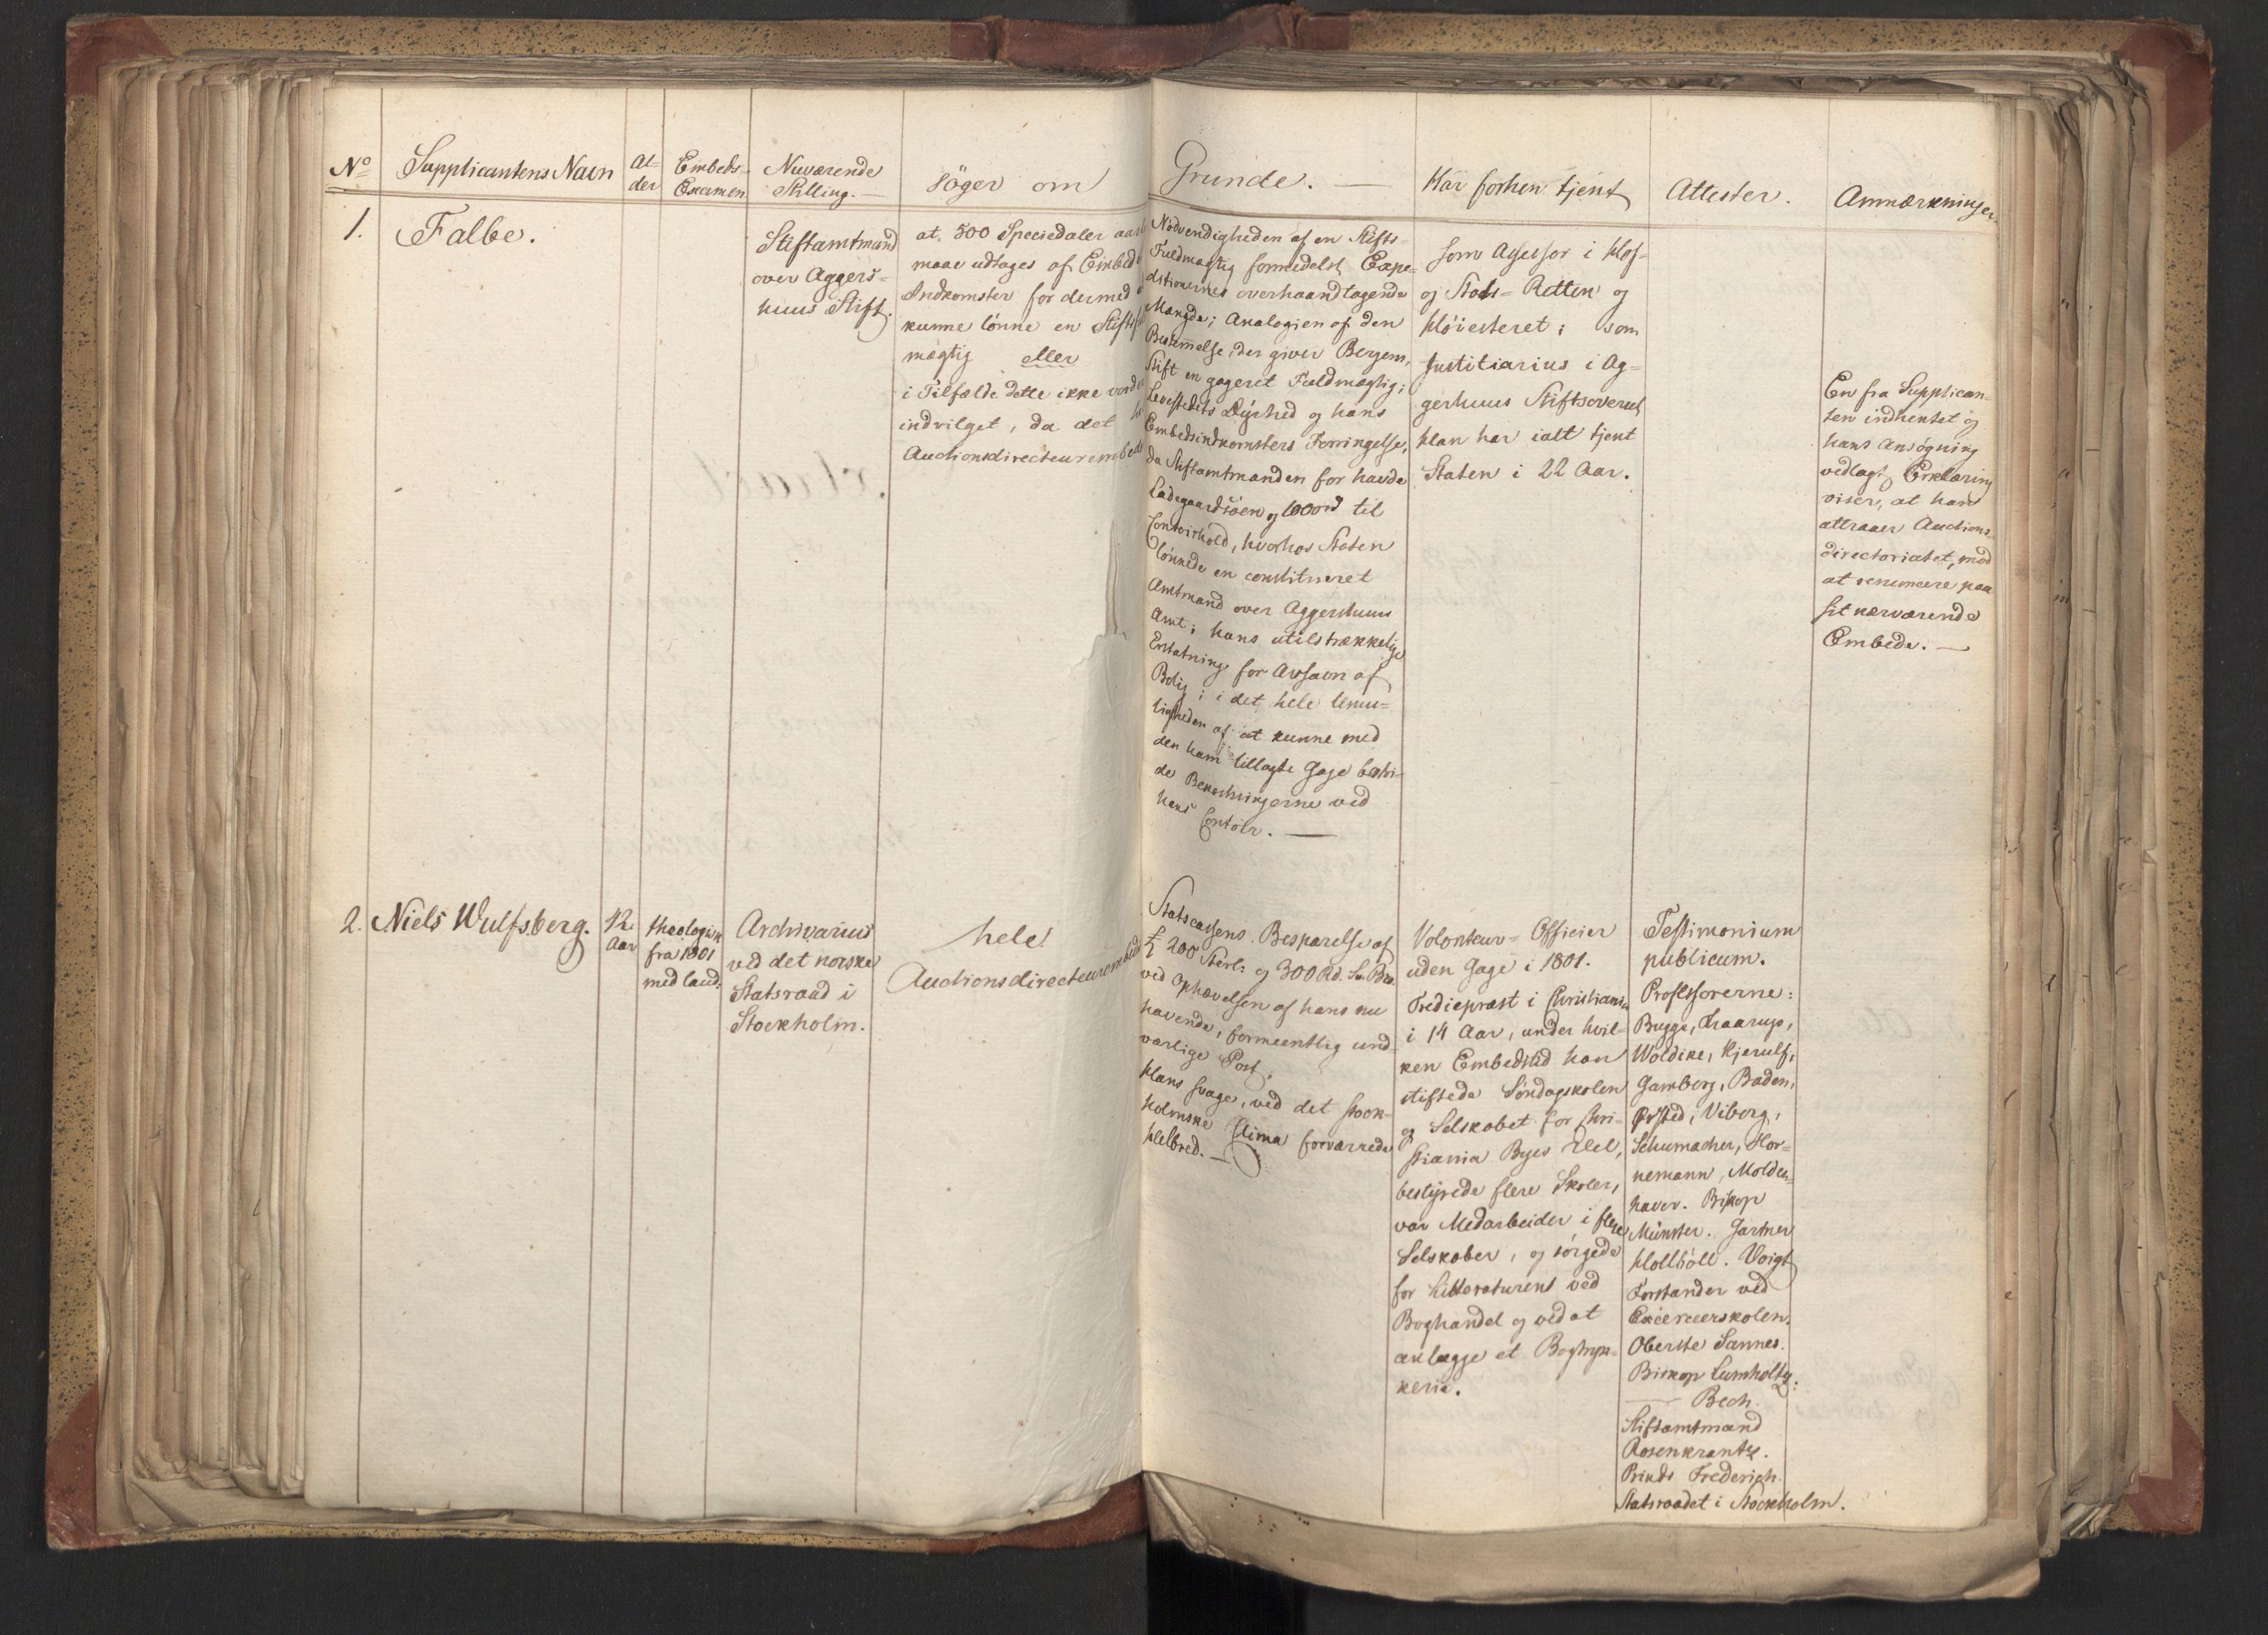 No
Supplicantens Navn
Al-
der
Embeds-
Examen
Nuværende
Stilling. —
søger om
Grunde. —
Har forhen tjent
Attester.
Anmærkninger.
1.
Falbe.
Stiftamtmand
over Aggers-
huus Stift.
at 500 Speciedaler
maae udtages af
Indkomster for dermed
kunne lønne en
mægtig eller
i Tilfælde dette ikke
indvilget, da det
Auctionsdirecteurembede
Nødvendigheden af en Stifts-
Fuldmægtig formedelst Expe-
ditionernes overhaandtagende
Mængde; Analogien af den
Bestemmelse, der giver Bergens
Stift en gageret Fuldmægtig;
Levestedets Dyrhed og hans
Embedsindkomsters Forringelse,
da Stiftamtmanden før havde
Ladegaardsøen og 1000rd til
Contoirhold, hvorhos Staten
lønnede en constitueret
Amtmand over Aggershuus
Amt; hans utilstrækkelige
Erstatning for Avsavn af
Bolig; i det hele Umu-
ligheden af at kunne med
den ham tillagte Gage bestri-
de Bekostningerne ved
hans Contoir. —
som Assessor i Hof-
og Stads-Retten og
Høiesteret; som
Justitiarius i Ag-
gerhuus Stiftsoverret
Han har ialt tjent
Staten i 22 Aar.
En fra Supplican-
ten indhentet og
hans Ansøgning
vedlagt Erklæring
viser, at han
attraaer Auctions-
directoriatet, mod
at renuncere paa
sit nærværende
Embede. —
2.
Niels Wulfsberg.
Aar
theologisk
fra 1801
med laud.
Archivarius
ved det norske
Statsraad i
Stockholm.
hele
Auctionsdirecteurembedet
Statscassens Besparelse af
£ 200 Sterl. og 300 Rd. Sv. Bco.
ved Ophævelsen af hans nu
havende, formeentlig und-
værlige Post.
Hans svage, ved det stock-
holmske Clima forværrede
Helbred. —
Volonteur-Officier
uden Gage i 1801.
Trediepræst i Christiania
i 14 Aar, under hvil-
ken Embedstid han
stiftede Søndagskolen
og Selskabet for Chri-
stiania Byes Vel,
bestyrede flere Skoler,
var Medarbeider i flere
Selskaber, og sørgede
for Litteraturens ved
Boghandel og ved at
anlægge et Bogtryk-
kerie.
Testimonium
publicum.
Professorerne:
Bugge, Kraarup,
Woldike, Kjerulf,
Gamborg, Baden,
Ørsted, Viborg,
Schumacher, Hor-
nemann, Molden-
hawer. Biskop
Münster. Gartner
Holbøll. Voigt
Forstander ved
Exerceerskolen.
Oberste Sannes.
Biskop Lumholtz.
— Bech.
Stiftamtmand
Rosenkrantz.
Prinds Frederich.
Statsraadet i Stockholm.